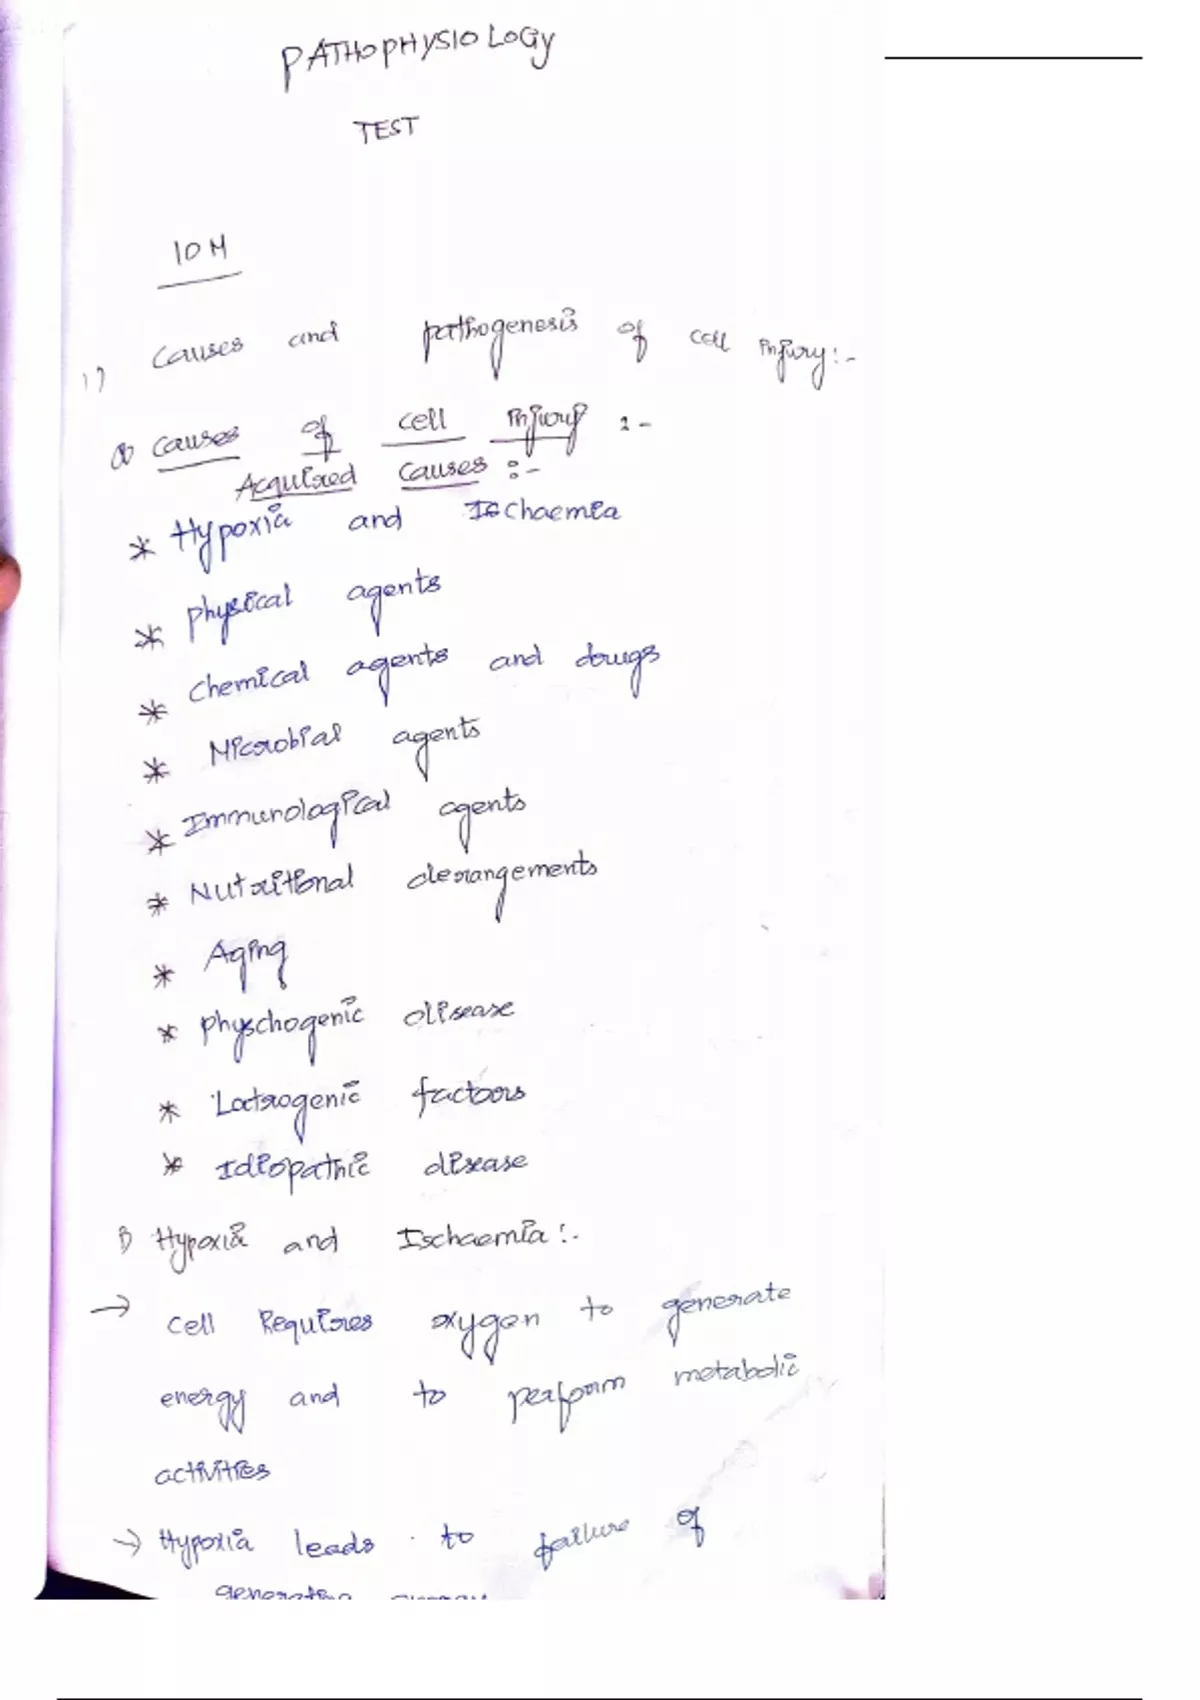 PATHOPHYSIOLOGY
TEST
10M
1) Causes and pathogenesis of cell injury:-
a) Causes of cell injury :-
Acquired causes :-
* Hypoxia and Ischaemia
* physical agents
* chemical agents and drugs
* Microbial agents
* Immunological agents
* Nutritional derangements
* Aging
* physchogenic disease
* Iatrogenic factors
* Idiopathic disease
1) Hypoxia and Ischaemia :-
→ cell Requires oxygen to generate
energy and to perform metabolic
activities
→ Hypoxia leads to failure of
generating energy